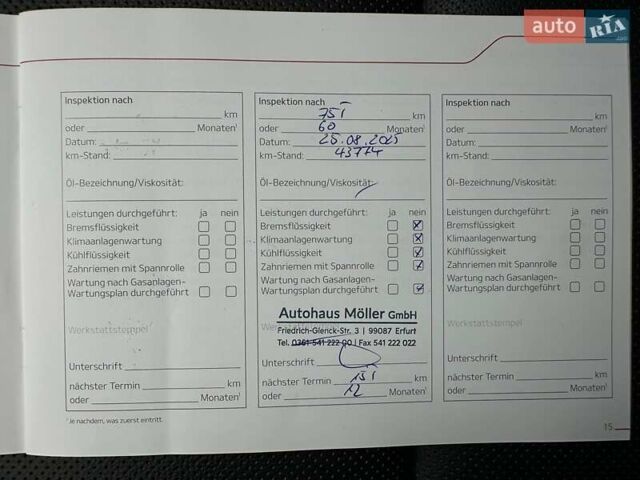 auto RIA .com
Inspektion nach
km
oder Monaten¹
Datum:
km-Stand:
Öl-Bezeichnung/Viskosität:
Leistungen durchgeführt: ja nein
Bremsflüssigkeit
Klimaanlagenwartung
Kühlflüssigkeit
Zahnriemen mit Spannrolle
Wartung nach Gasanlagen-
Wartungsplan durchgeführt
Werkstattstempel
Unterschrift
nächster Termin km
oder Monaten¹
Inspektion nach
75T km
oder 60 Monaten¹
Datum: 25.08.2025
km-Stand: 43774
Öl-Bezeichnung/Viskosität:
Leistungen durchgeführt: ja nein
Bremsflüssigkeit
Klimaanlagenwartung
Kühlflüssigkeit
Zahnriemen mit Spannrolle
Wartung nach Gasanlagen-
Wartungsplan durchgeführt
Autohaus Möller GmbH
Friedrich-Glenck-Str. 3 | 99087 Erfurt
Tel. 0361-541 222 00 | Fax 541 222 022
Unterschrift
nächster Termin 15T km
oder 12 Monaten¹
Inspektion nach
km
oder Monaten¹
Datum:
km-Stand:
Öl-Bezeichnung/Viskosität:
Leistungen durchgeführt: ja nein
Bremsflüssigkeit
Klimaanlagenwartung
Kühlflüssigkeit
Zahnriemen mit Spannrolle
Wartung nach Gasanlagen-
Wartungsplan durchgeführt
Werkstattstempel
Unterschrift
nächster Termin km
oder Monaten¹
¹ Je nachdem, was zuerst eintritt.
15